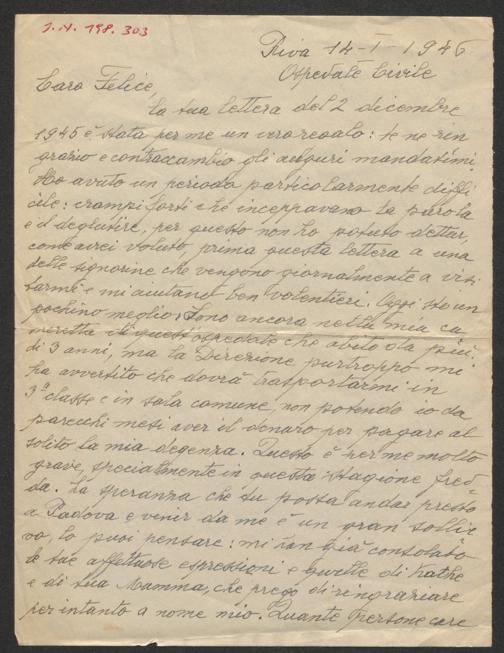 I.N. 198.303
Riva 14-I-1946
Ospedale Civile
Caro Felice,
la tua lettera del 2 dicembre
1945 è stata per me un vero regalo: te ne rin
grazio e contraccambio gli auguri mandatimi.
Ho avuto un periodo particolarmente diffi
cile: crampi forti che inceppavano la parola
e il deglutire, per questo non ho potuto dettar,
come avrei voluto, prima questa lettera a una
delle signorine che vengono giornalmente a visi
tarmi e mi aiutano ben volentieri. Oggi sto un
pochino meglio. Sono ancora nella mia ca
meretta di quest'ospedale che abito da più
di 3 anni, ma la Direzione purtroppo mi
ha avvertito che dovrà trasportarmi in
3ª classe e in sala comune, non potendo io da
parecchi mesi aver il denaro per pagare al
solito la mia degenza. Questo è per me molto
grave, specialmente in questa stagione fred-
da. La speranza che tu possa andar presto
a Padova e venir da me è un gran sollie
vo, lo puoi pensare: mi han già consolato
le tue affettuose espressioni e quelle di Käthe
e di tua Mamma, che prego di ringraziare
per intanto a nome mio. Quante persone care